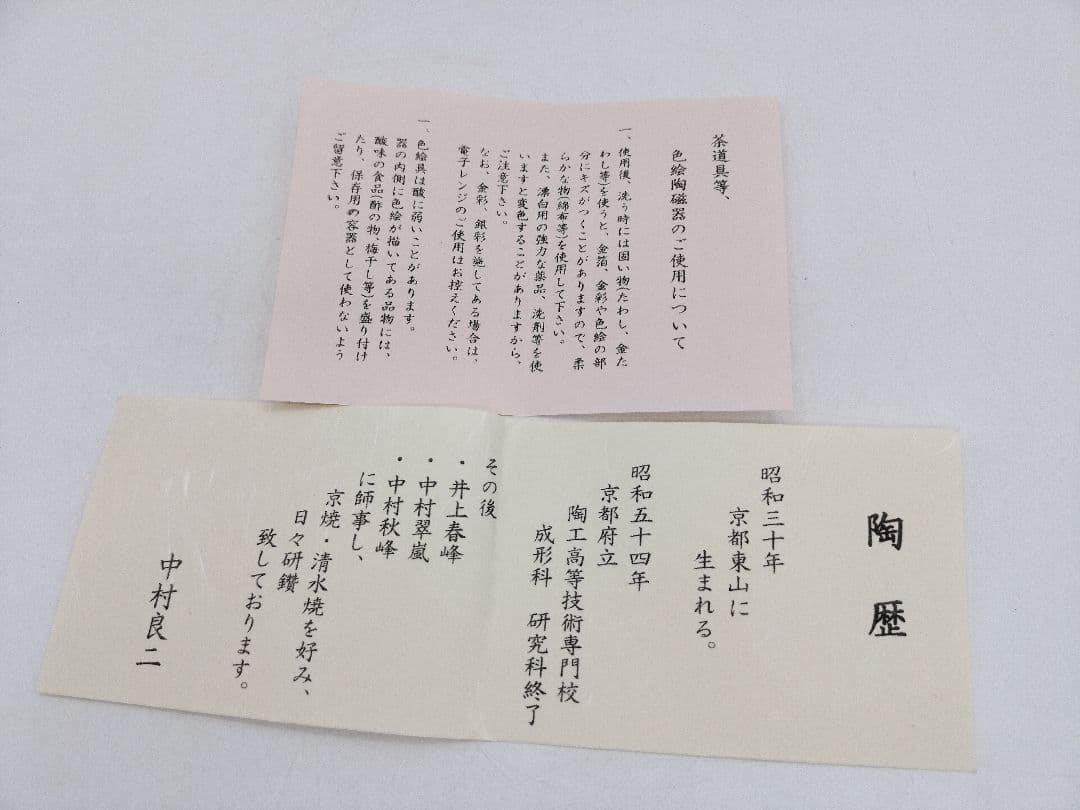 茶道具等、
色絵陶磁器のご使用について
一、使用後、洗う時には固い物(たわし、金た
わし等)を使うと、金箔、金彩や色絵の部
分にキズがつくことがありますので、柔
らかな物(綿布等)を使用して下さい。
また、漂白用の強力な薬品、洗剤等を使
いますと変色することがありますから、
ご注意下さい。
なお、金彩、銀彩を施してある場合は、
電子レンジのご使用はお控えください。
一、色絵具は酸に弱いことがあります。
器の内側に色絵が描いてある品物には、
酸味の食品(酢の物、梅干し等)を盛り付け
たり、保存用の容器として使わないよう
ご留意下さい。
陶歴
昭和三十年
京都東山に
生まれる。
昭和五十四年
京都府立
陶工高等技術専門校
成形科 研究科終了
その後
・井上春峰
・中村翠嵐
・中村秋峰
に師事し、
京焼・清水焼を好み、
日々研鑽
致しております。
中村良二